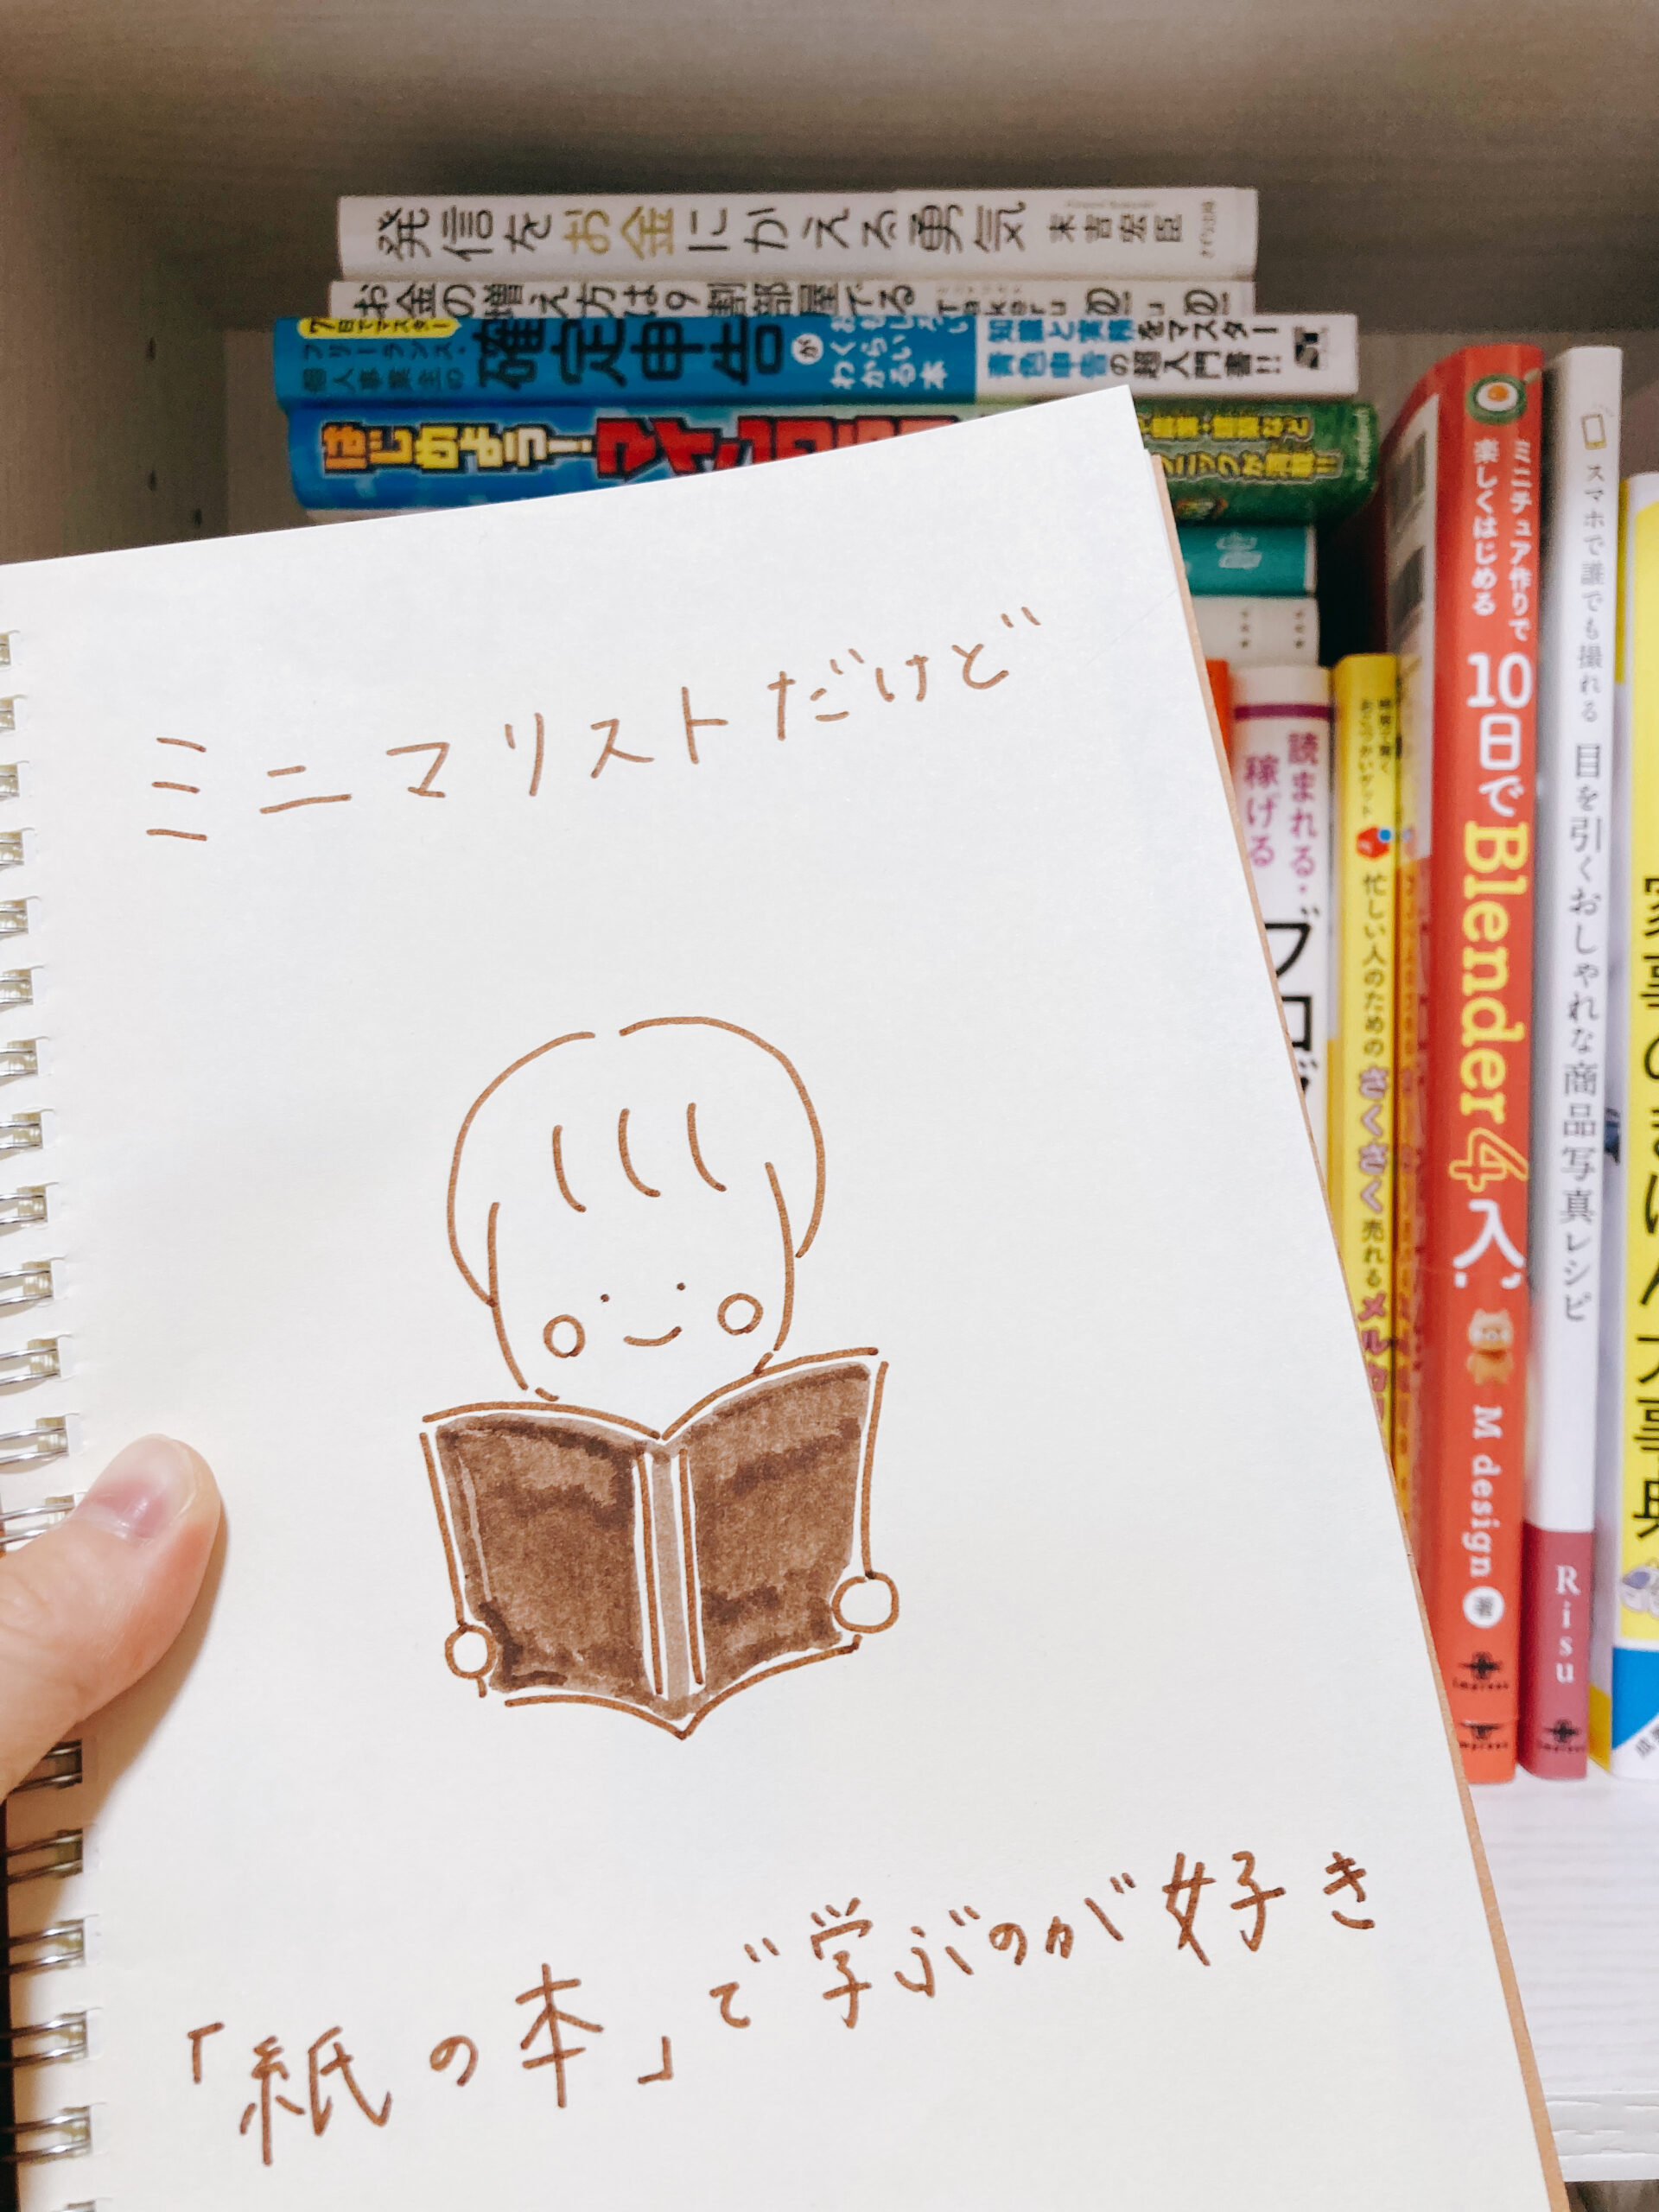 発信をお金にかえる勇気 末吉宏臣
お金の増え方は9割部屋でる
7日でマスター
フリーランス・個人事業主の
確定申告が
おもしろいくらいわかる本
知識と実務をマスター
青色申告の超入門書!!
はじめよう!
ミニマリストだけど
「紙の本」で学ぶのが好き
読まれる・
稼げる
ブログ
忙しい人のための さくさく 売れる メルカリ
ミニチュア作りで
楽しくはじめる
10日でBlender4入門
M design 著
impress
impress
スマホで誰でも撮れる 目を引くおしゃれな商品写真レシピ
Risu
impress